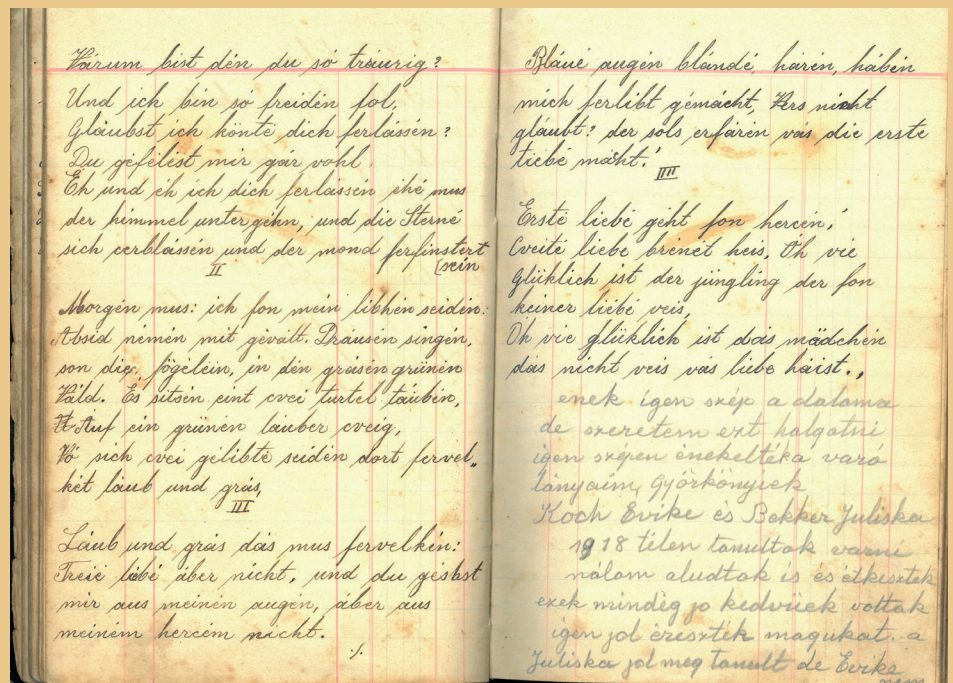 Várum bist dén du só tráurig?
Und ich bin só freidén fol,
Gláubst ich könté dich ferlássén?
Du géfélést mir gár vohl.
Eh und éh ich dich ferlássén éhé mus
der himmel unter géhn, und die Sterné
sich cerblássén und der mond ferfinstert
[sein
II
Morgén mus: ich fon mein libhén seidén:
Absid némén mit gévált. Dráusén singén,
son die, fögelein, in dén grásén grünén
Váld. Es sitsén eint cvei turtel táubén,
Auf ein grünén láuber cveig,
Vó sich cvei gélibté seidén dort fervel„
két láub und grás,
III
Láub und grás dás mus fervelkén:
Treié libé áber nicht, und du géshst
mir aus meinén augén, áber aus
meiném hercém nicht.
·/.
Bláué augén blándé, hárén, hábén
mich ferlibt gémácht, Vers nicht
gláubt? der sols erfárén vás die erste
liebé mácht!
IIII
Ersté liebé géht fon hercén,
Cveité liebé brénét heis, Oh vie
Glüklich ist der jüngling der fon
keiner liebé veis,
Oh vie glüklich ist dás mädchén
dás nicht veis vás liebe háist.,
enek igen szép a daloma
de szeretem ezt halgatni
igen szépen énekelték a varó
lányaim, Györkönyiek
Koch Evike és Bekker Juliska
1918 télen tanultak varni
nálam aludtak is és étkeztek
ezek mindég jo kedvüek voltak
igen jol érezték magukat. a
Juliska jol meg tanult de Evike
nem